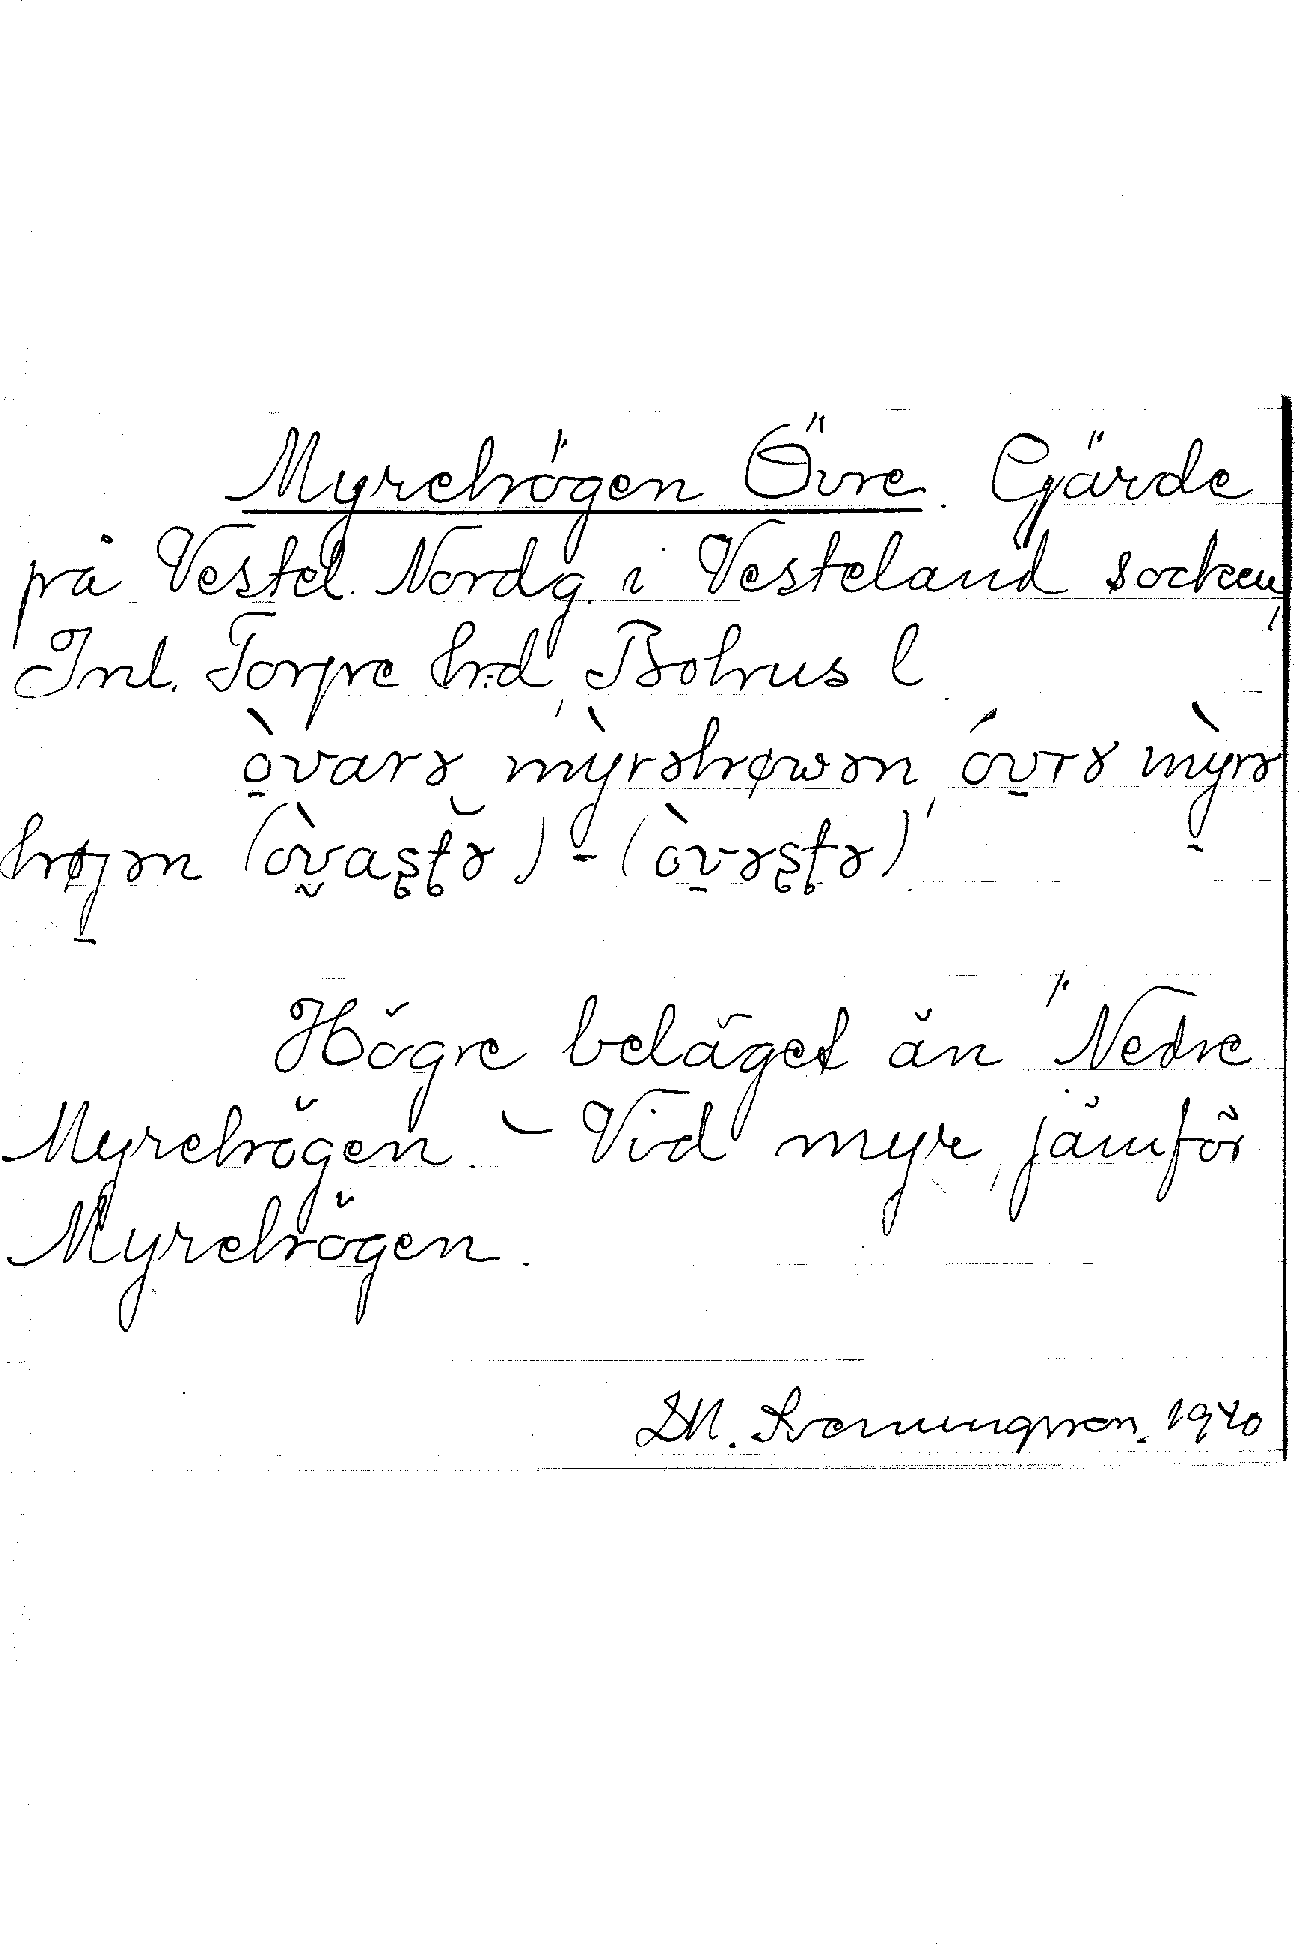 Myrehögen Övre. Gärde
på Vestel. Nordg. i Vesteland socken,
Inl. Torpe hd, Bohus l
ò̱varə mỳrəhøwən, óv̱rə mỳ̱rə
høj̱ən (òv̰aʂʈə̆) - (òv̱əʂʈə)
Högre beläget än Nedre
Myrehögen. – Vid myr, jämför
Myrehögen.
1940